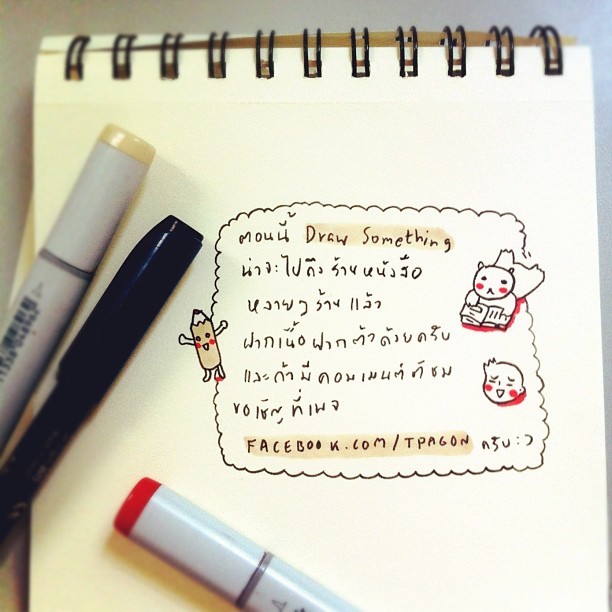 ตอนนี้ Draw Something
น่าจะไปถึงร้านหนังสือ
หลายๆร้านแล้ว
ฝากเนื้อฝากตัวด้วยครับ
และถ้ามีคอมเมนต์ติชม
ขอเชิญที่เพจ
FACEBOOK.COM/TPAGON ครับ :)